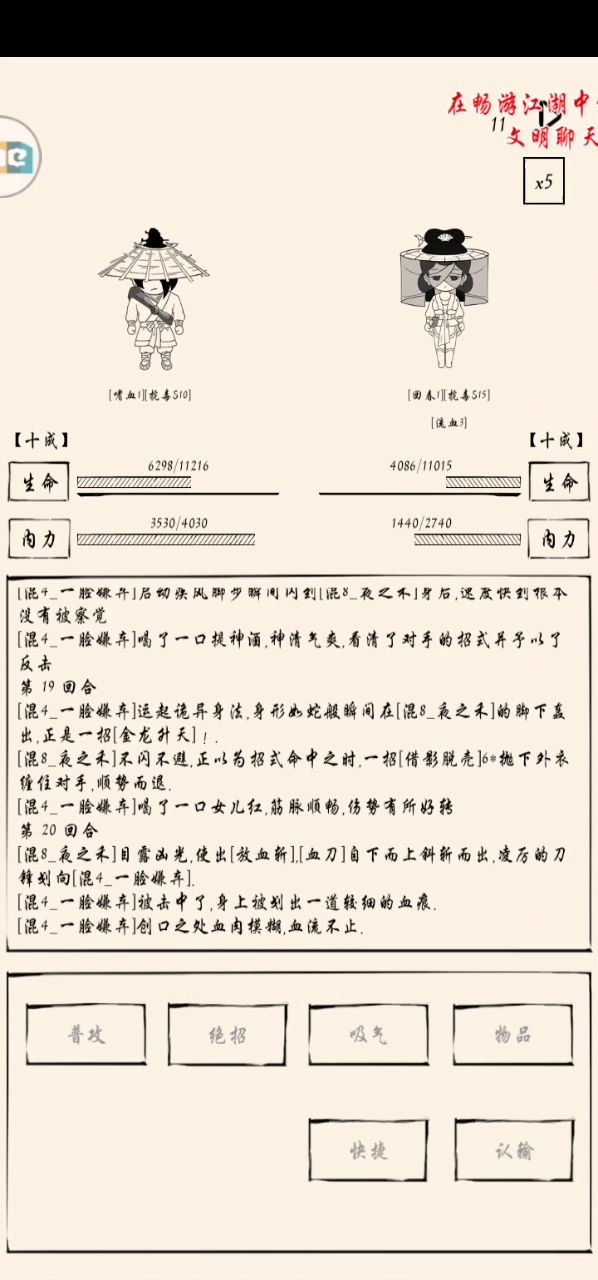 在畅游江湖中
11
文明聊天
x5
[嗜血1][抗毒S10]
[回春1][抗毒S15]
[流血3]
【十成】
【十成】
生命
6298/11216
4086/11015
生命
内力
3530/4030
1440/2740
内力
[混4_一脸嫌弃]启动疾风脚步瞬间闪到[混8_夜之禾]身后,速度快到根本
没有被察觉
[混4_一脸嫌弃]喝了一口提神酒,神清气爽,看清了对手的招式并予以了
反击
第 19 回合
[混4_一脸嫌弃]运起诡异身法,身形如蛇般瞬间在[混8_夜之禾]的脚下轰
出,正是一招[金龙升天]！.
[混8_夜之禾]不闪不避,正以为招式命中之时,一招[借影脱壳]6*抛下外衣
缠住对手,顺势而退.
[混4_一脸嫌弃]喝了一口女儿红,筋脉顺畅,伤势有所好转
第 20 回合
[混8_夜之禾]目露凶光,使出[放血斩],[血刀]自下而上斜斩而出,凌厉的刀
锋划向[混4_一脸嫌弃].
[混4_一脸嫌弃]被击中了,身上被划出一道较细的血痕.
[混4_一脸嫌弃]创口之处血肉模糊,血流不止.
普攻
绝招
吸气
物品
快捷
认输